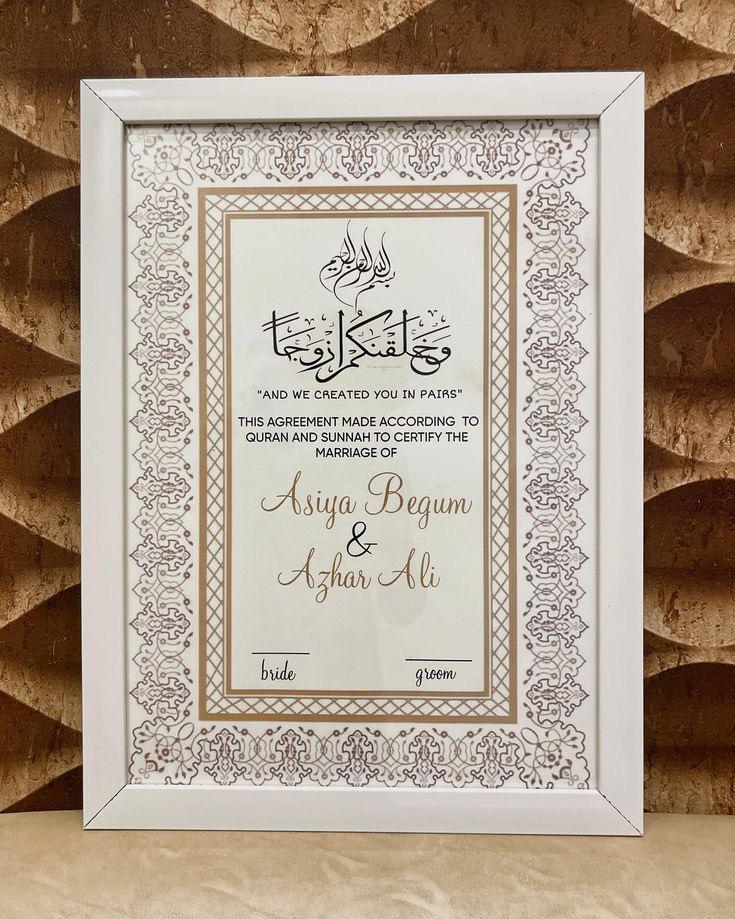 بسم الله الرحمن الرحيم
وَخَلَقْنَكُمْ أَزْوَجًا
"AND WE CREATED YOU IN PAIRS"
THIS AGREEMENT MADE ACCORDING TO
QURAN AND SUNNAH TO CERTIFY THE
MARRIAGE OF
Asiya Begum
&
Azhar Ali
bride
groom